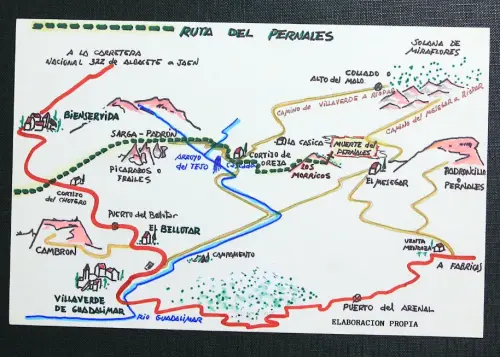 RUTA DEL PERNALES
A LA CARRETERA
NACIONAL 322 DE ALBACETE A JAEN
SOLANA DE
MIRAFLORES
COLLADO
ALTO DEL MALO
CAMINO DE VILLAVERDE A RIOPAR
CAMINO DEL MESEGAR A RIOPAR
BIENSERVIDA
SARGA-PADRON
LA CASICA
MUERTE DEL
PERNALES
PICARAZOS O
FRAILES
ARROYO
DEL TEJO
CORTIJO DE
OREZA
LOS
MORRICOS
EL MESEGAR
PADRONCILLO
O
PERNALES
CORTIJO
DEL CHOTERO
PUERTO del Bellotar
EL BELLOTAR
CAMBRON
CAMPAMENTO
VENTA
MENDOZA
A FABRICAS
VILLAVERDE
DE GUADALIMAR
RIO GUADALIMAR
PUERTO del ARENAL
ELABORACION PROPIA